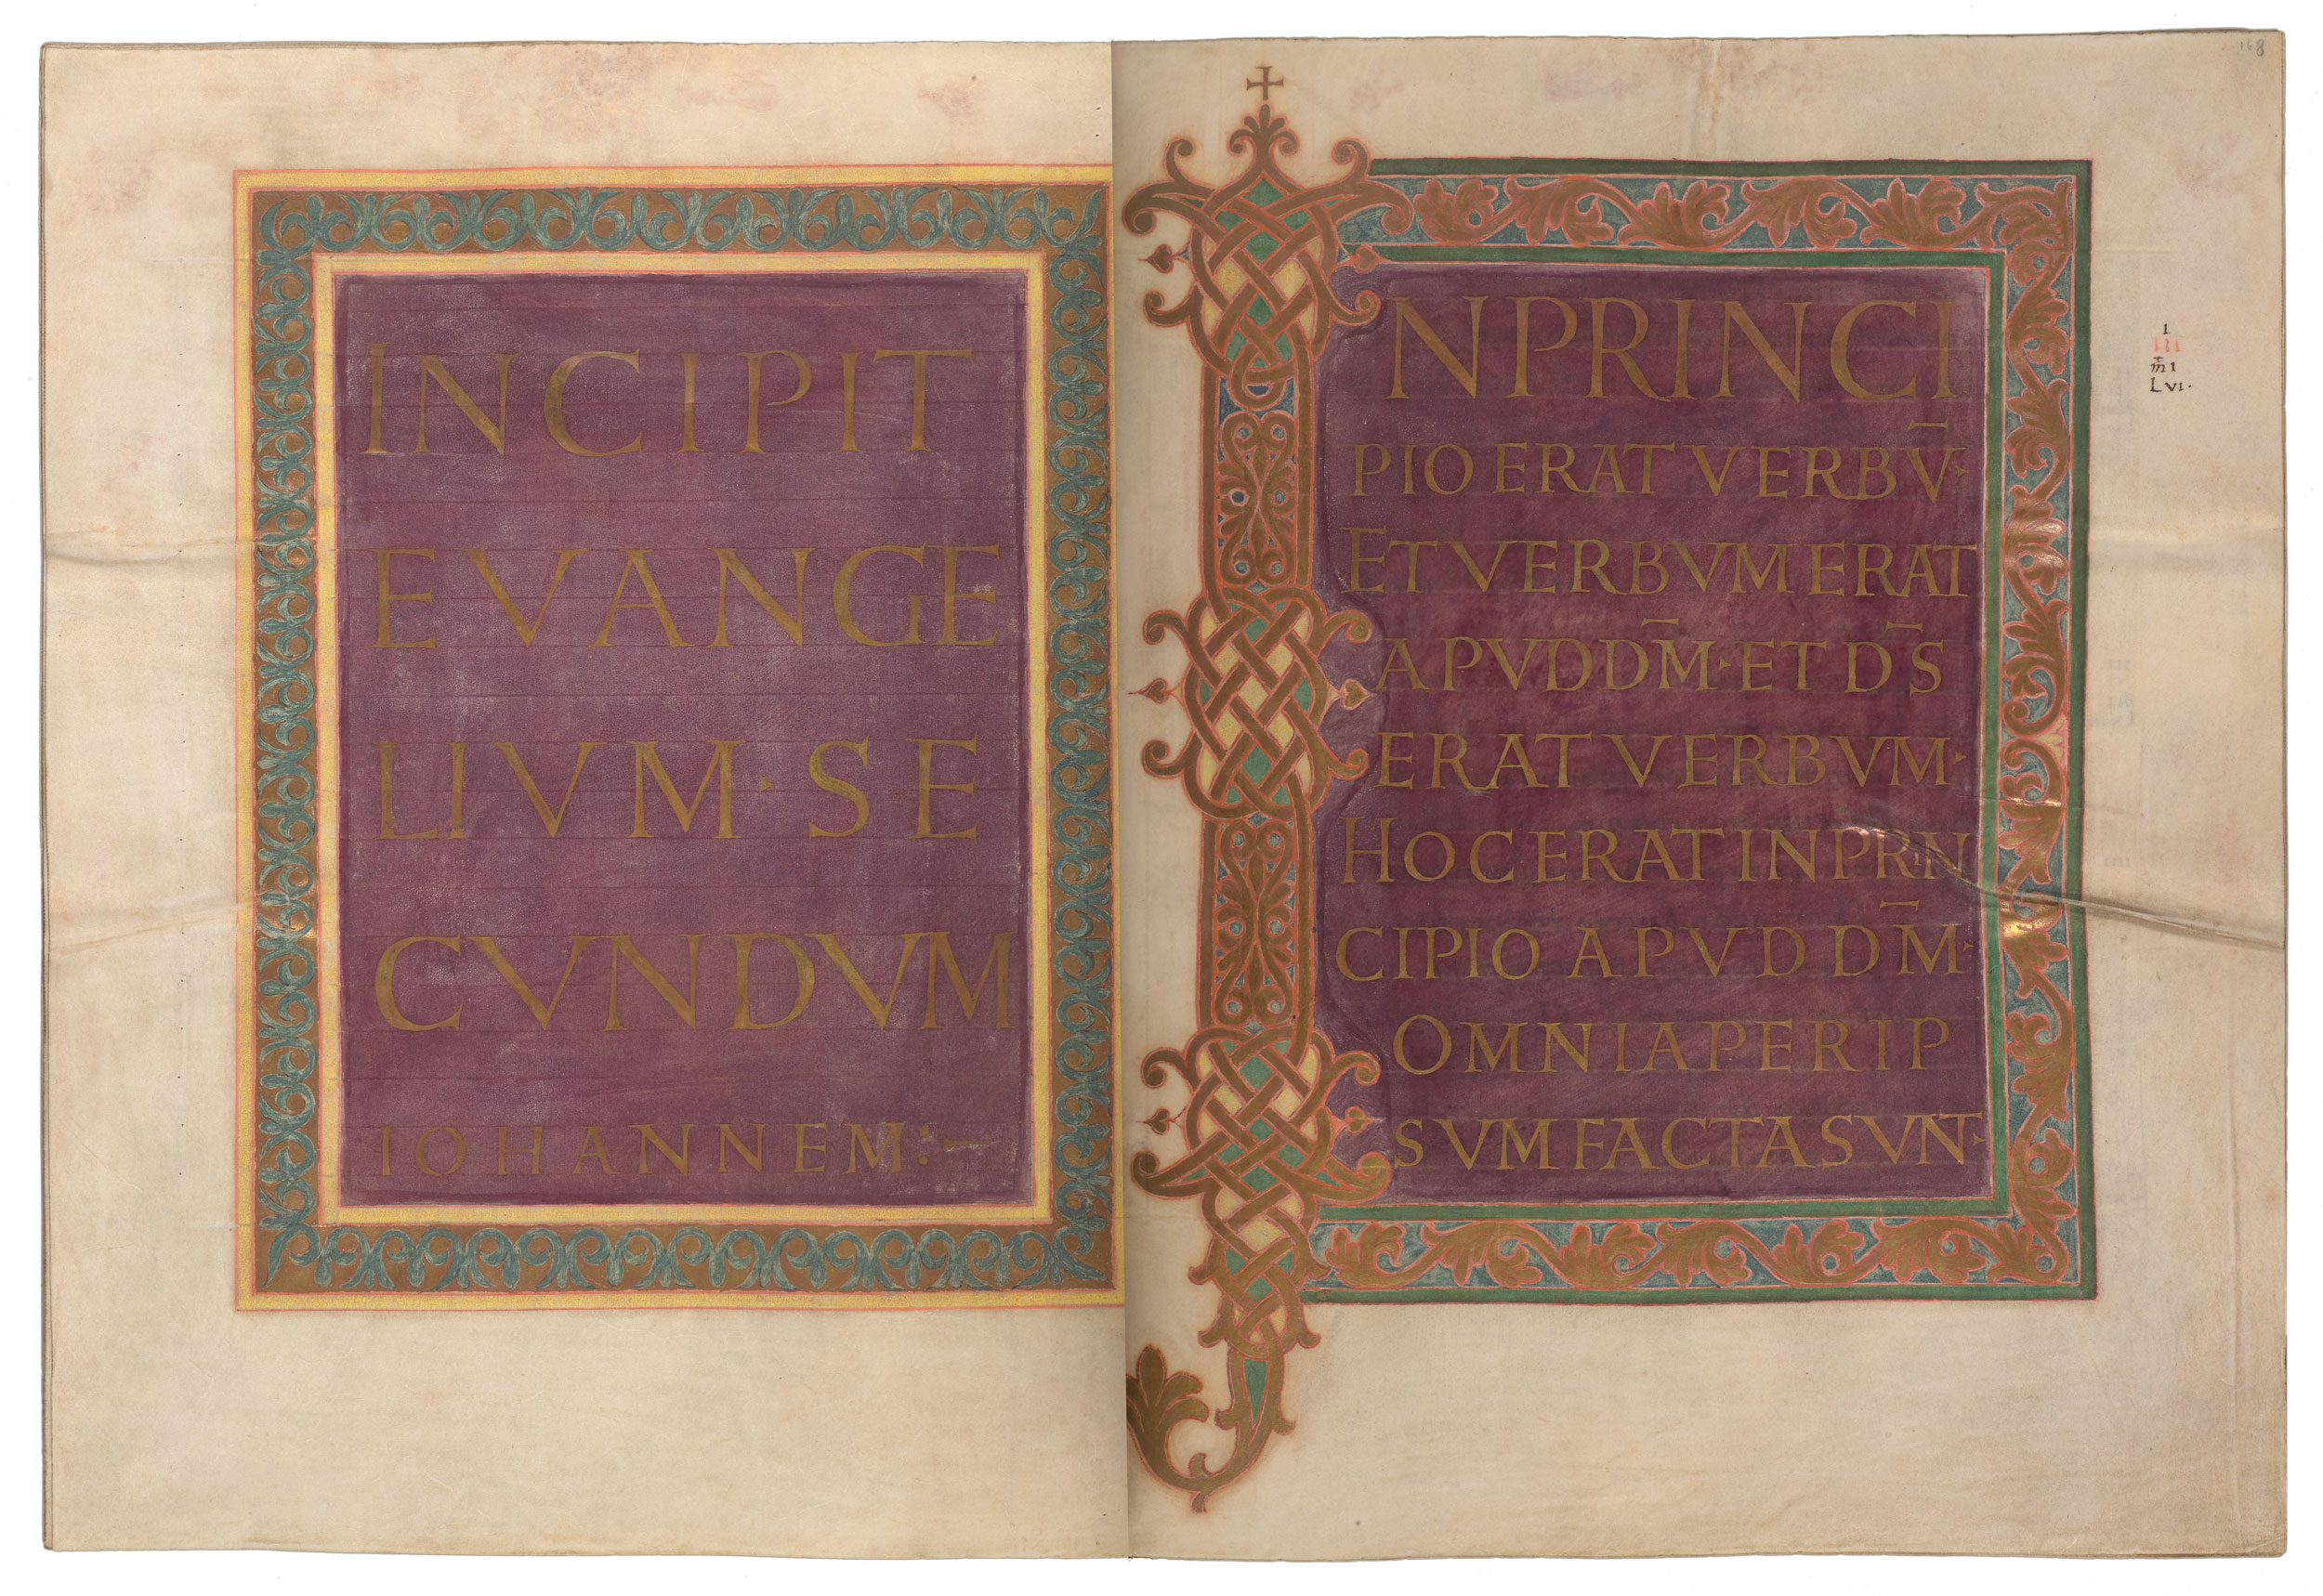 INCIPIT
EVANGE
LIVM · SE
CVNDVM
IOHANNEM :~
168
IN PRINCI
PIO ERAT VERBV̅ ·
ET VERBVM ERAT
APVD DM̅ · ET DS̅
ERAT VERBVM ·
HOC ERAT IN PRIN
CIPIO APVD DM̅ ·
OMNIA PER IP
SVM FACTA SVN ·
I
III
m̅ I
LVI ·